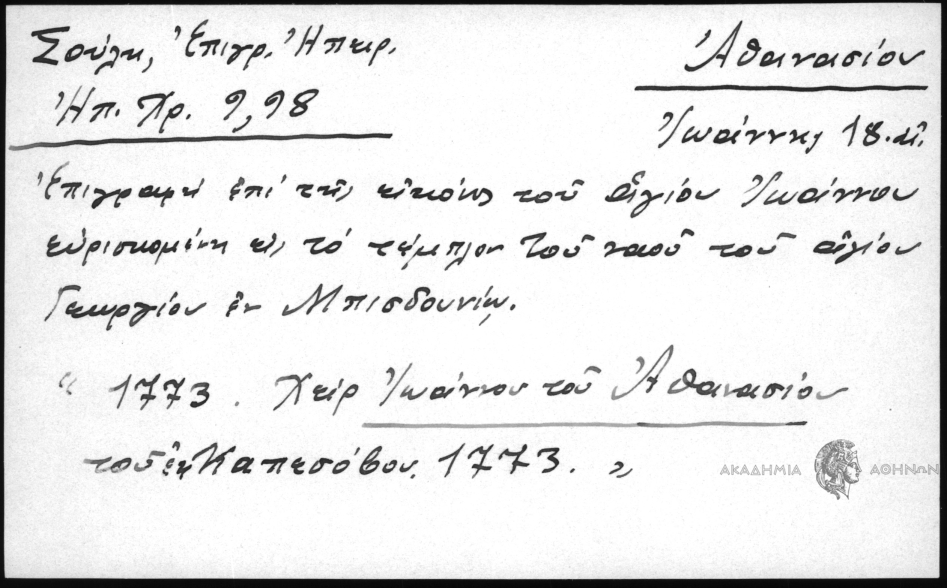 Σούλη, Ἐπιγρ. Ἠπειρ.
Ἠπ. Χρ. 9, 98
Ἀθανασίου
Ἰωάννης 18. αἰ.
Ἐπιγραφή ἐπί τῆς εἰκόνος τοῦ ἁγίου Ἰωάννου
εὑρισκομένη εἰς τό τέμπλον τοῦ ναοῦ τοῦ ἁγίου
Γεωργίου ἐν Μπισδουνίῳ.
“ 1773. Χείρ Ἰωάννου τοῦ Ἀθανασίου
τοῦ ἐκ Καπεσόβου, 1773. ”
ΑΚΑΔΗΜΙΑ ΑΘΗΝΩΝ